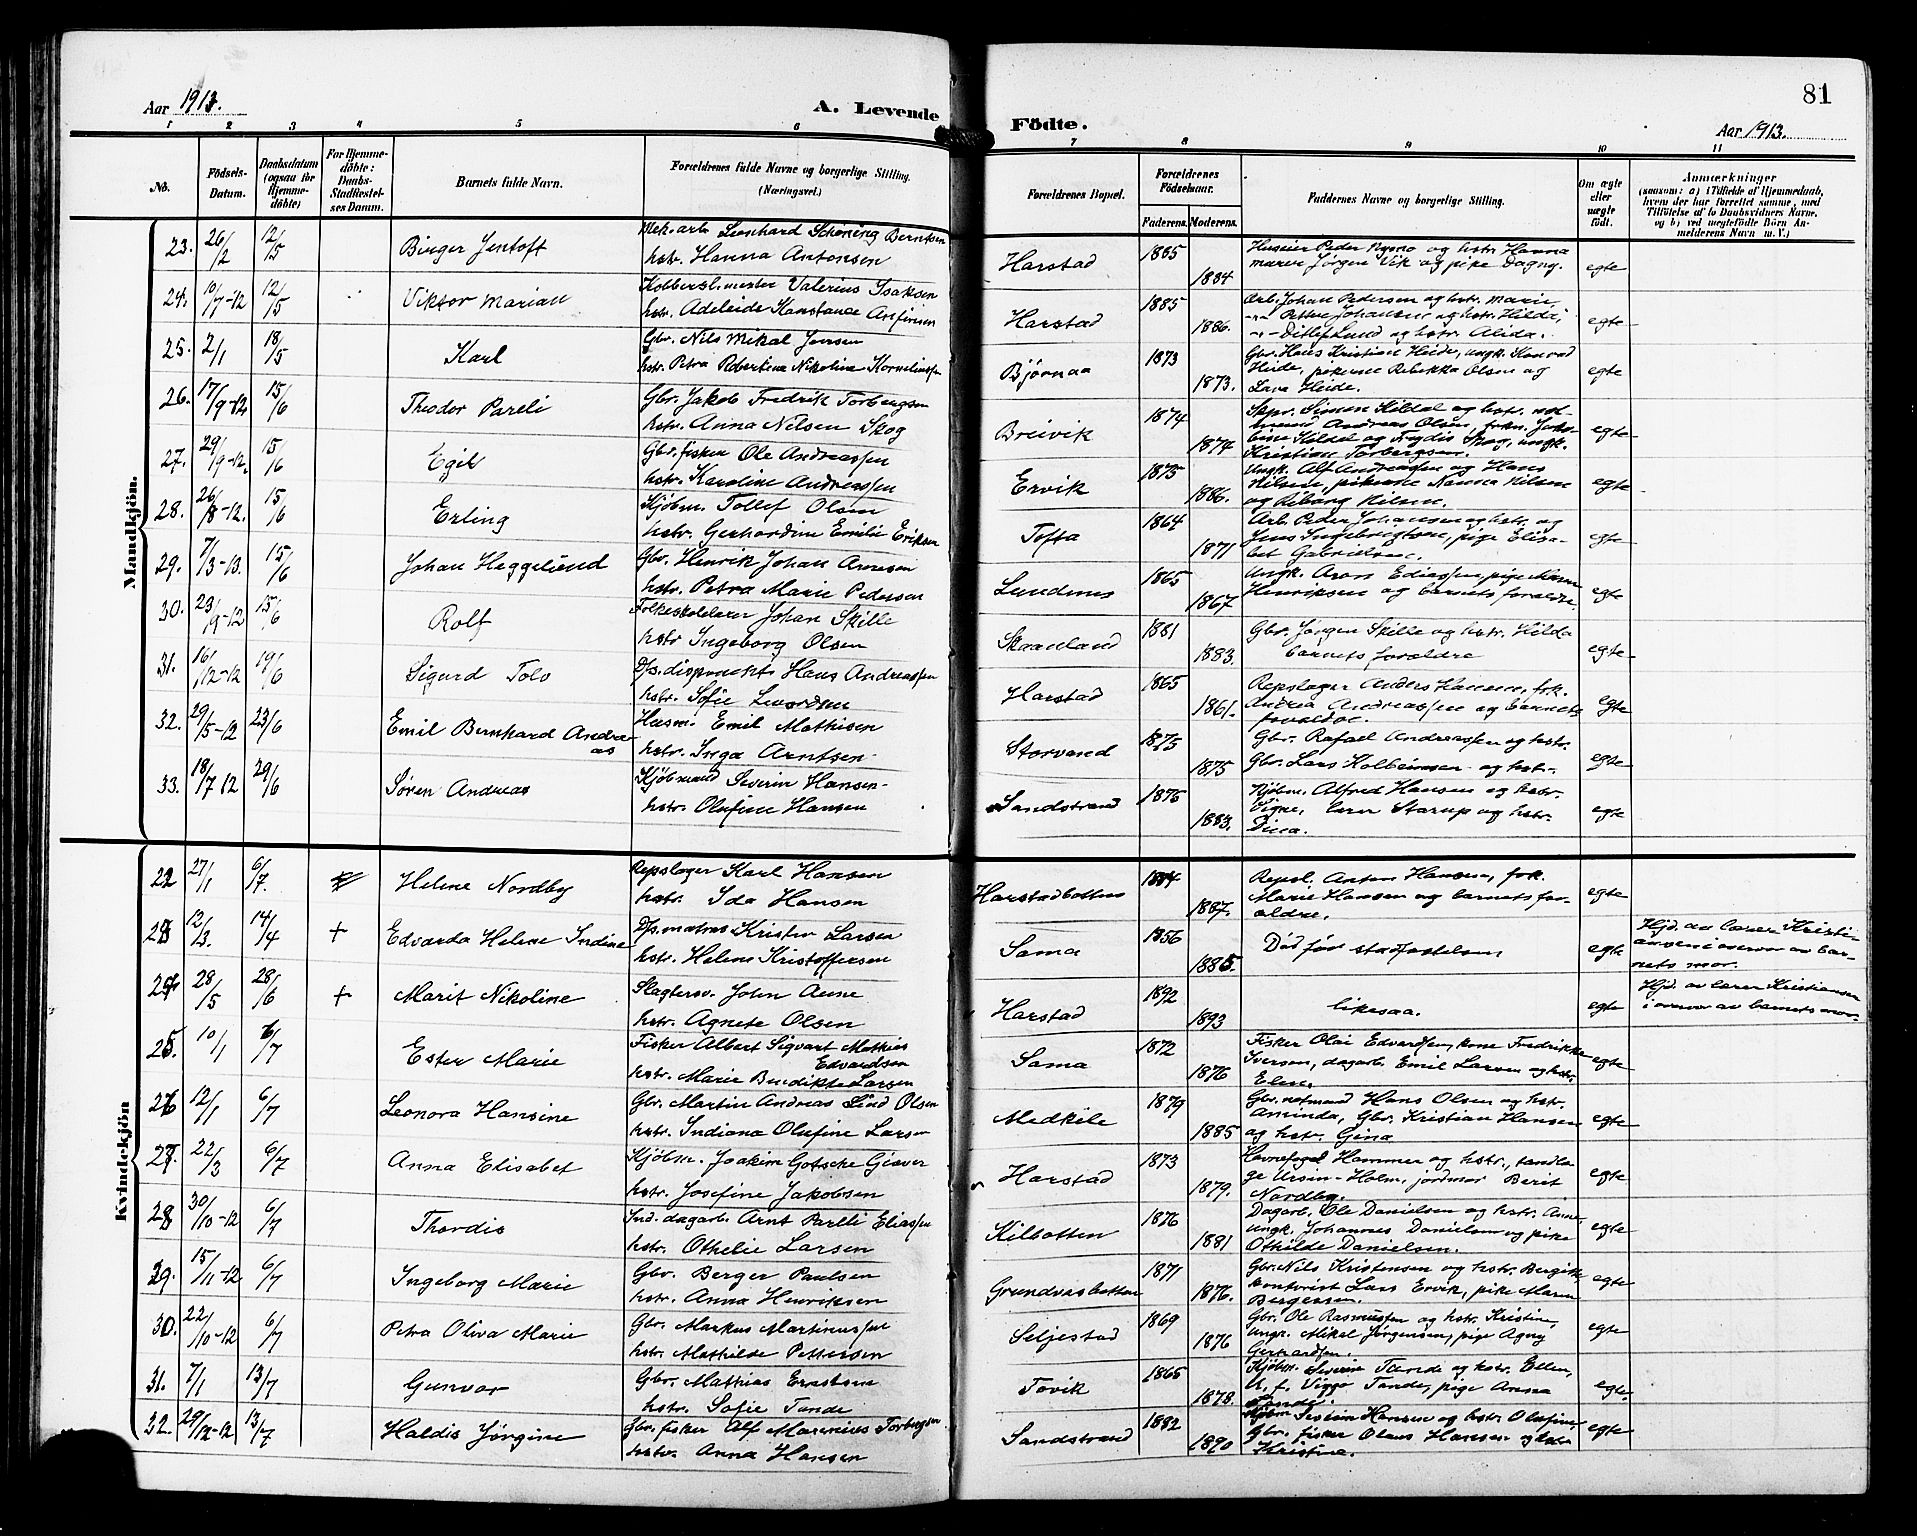 81
Aar 1913.
A. Levende
Födte.
Aar 1913.
1 2 3 4 5 6 7 8 9 10 11
No.
Födsels-Datum.
Daabsdatum (ogsaa for Hjemme-döbte)
For Hjemme-döbte: Daabs-Stadfæstel-ses Datum.
Barnets fulde Navn.
Forældrenes fulde Navne og borgerlige Stilling. (Næringsvei.)
Forældrenes Bopæl.
Forældrenes Födselsaar.
Faderens. Moderens.
Faddernes Navne og borgerlige Stilling.
Om ægte eller uægte födt.
Anmærkninger
(saasom: a) i Tilfælde af Hjemmedaab, hvem der har forrettet samme, med Tilföielse af to Daabsvidners Navne, og b) ved uægtefödte Börn An-melderens Navn m. V.)
Mandkjön.
23. 26/2 12/5 Birger Jentoft Mek. arb. Leonhard Schøning Berntsen
hstr. Hanna Antonsen Harstad 1885 1884 egte
24. 10/7-12 12/5 Viktor Marian Valerius Isaksen
hstr. Adeleide Konstanse Anfinsen Harstad 1885 1886. Arb. Johan Pedersen og hstr. Marie,
Petter Johansen og hstr. Hilda,
Ditlef Lund og hstr. Alida. egte
25. 2/1 18/5 Karl Gbr. Nils Mikal Iversen
hstr. Petra Robertine Nikoline Korneliussen Bjørnaa 1873 1873. Gbr. Hans Kristian Heide, ungk. Konrad
Heide, pikerne Rebekka Olsen og
Lava Heide. egte
26. 17/9-12 15/6 Theodor Pareli Gbr. Jakob Fredrik Torbergsen
hstr. Anna Nilsen Skog Breivik 1874 1874 Skpr. Simon Kildal og hstr.
Andreas Olsen, frkn.
Kildal og Frydis Skog, ungk.
Kristian Torbergsen. egte
27. 29/9-12. 15/6 Egil Gbr. fisker Ole Andreassen
hstr. Karoline Andreassen Ervik 1875 1886. Ungk. Alf Andreassen og Hans
Nilsen, pikerne Nanna Nilsen
og Nilsen. egte
28. 26/8-12. 15/6 Erling Kjøbm. Tollef Olsen
hstr. Gerhardine Emilie Eriksen Tofta 1864 1871 Arb. Peder Johansen og hstr. og
Jens Ingebrigtsen, pige Elisa-
bet Gabrielsen. egte
29. 7/3-13. 15/6 Johan Heggelund Gbr. Henrik Johan Arnesen
hstr. Petra Marie Pedersen Lundenes 1865 1867 Ungk. Aron Ediassen, pige
Henriksen og barnets forældre. egte
30. 23/9-12 15/6 Rolf Folkeskolelærer Johan Skille
hstr Ingeborg Olsen Skaanland 1881 1883. Gbr. Jørgen Skille og hstr. Hilda
barnets forældre egte
31. 16/12-12 19/6 Sigurd Tolo Hans Andreassen
hstr. Sofie Harstad 1865 1861. Repslager Anders Hansen, frk.
Andrea Andreassen og barnets
forældre. egte
32. 29/5-12 23/6 Emil Bernhard Andre
as Husm. Emil Mathisen
hstr. Inga Arntsen Storvand 1875 1875 Gbr. Rafael Andreassen og hstr.
Gbr. Lars Kolbeinsen og hstr. egte
33. 18/7 12 29/6 Søren Andreas Kjøbmand Severin Hansen
hstr. Olufine Hansen Sandstrand 1876 1883. Kjøbm. Alfred Hansen og hstr.
Signe, lærer Starup og hstr.
Dina. egte
Kvindekjön
22 27/1 6/7. Helene Nordby Repslager Karl Hansen
hstr. Ida Hansen Harstadbotten 1884 1887. Repsl. Anton Hansen, frk.
Marie Hansen og barnets for-
ældre. egte
23 12/3. 14/4 + Edvarda Helene Indine Kristen Larsen
hstr. Helene Kristoffersen Sama 1856 1885. Død før stadfæstelsen egte Hjd. av lærer Kristi-
ansen i overvær av bar-
nets mor.
24 28/5 28/6 + Marit Nikoline Slagtersv. John Aune
hstr. Agnete Olsen Harstad 1892 1893 likesaa. egte Hjd. av lærer Kristiansen
i overvær av barnets mor.
25. 10/1 6/7 Ester Marie Fisker Albert Sigvart Mathias
Edvardsen
hstr. Marie Bendikte Larsen Sama 1872 1876 Fisker Olai Edvardsen, kone Fredrikke
Iversen, dagarb. Emil Larsen og hstr.
Elen. egte
26 12/1 6/7 Leonora Hansine Gbr. Martin Andreas Lind Olsen
hstr. Indiana Olufine Larsen Medkile 1879 1885 Gbr. notmand Hans Olsen og hstr.
Aminda, Gbr. Kristian Hansen
og hstr. Gina egte
27. 22/3 6/7 Anna Elisabet Kjøbm. Joakim Gotsche Giæver
hstr. Josefine Jakobsen Harstad 1873 1879. Havnefoged Hammer og hstr., tandlæ
ge Ursin-Holm, jordmor Berit
Nordby. egte
28 30/10-12 6/7 Thordis Ind. dagarb. Arnt Parelli Eliassen
hstr. Othelie Larsen Kilbotten 1876 1881 Dagarb. Ole Danielsen og hstr. Anne,
ungk. Johannes Danielsen og pike
Othilde Danielsen. egte
29. 15/11-12 6/7 Ingeborg Marie Gbr. Berger Paulsen
hstr. Anna Henriksen Grundvasbotten 1871 1876. Gbr. Nils Kristensen og hstr. Bergitte
kontorist Lars Ervik, pike Maren
Bergersen. egte
30. 22/10-12 6/7 Petra Oliva Marie Gbr. Markus Martinussen
hstr. Mathilde Pettersen Seljestad 1869 1876 Gbr. Ole Rasmussen og hstr. Kristine,
ungk. Mikal Jørgensen, pige Agny
Gerhardsen. egte
31. 7/1 13/7 Gunvor Gbr. Mathias Erntsen
hstr. Sofie Tande Tovik 1865 1878. Kjøbm. Severin Tande og hstr. Ellen,
u. f. Viggo Tande, pige Anna
Tande. egte.
32. 29/12-12 13/7 Haldis Jørgine Gbr. fisker Alf Marenius Torbergsen
hstr. Anna Hansen Sandstrand 1882 1890 Kjøbm Severin Hansen og hstr Olufine,
Gbr. fisker Olaus Hansen og hstr
Kristine. egte